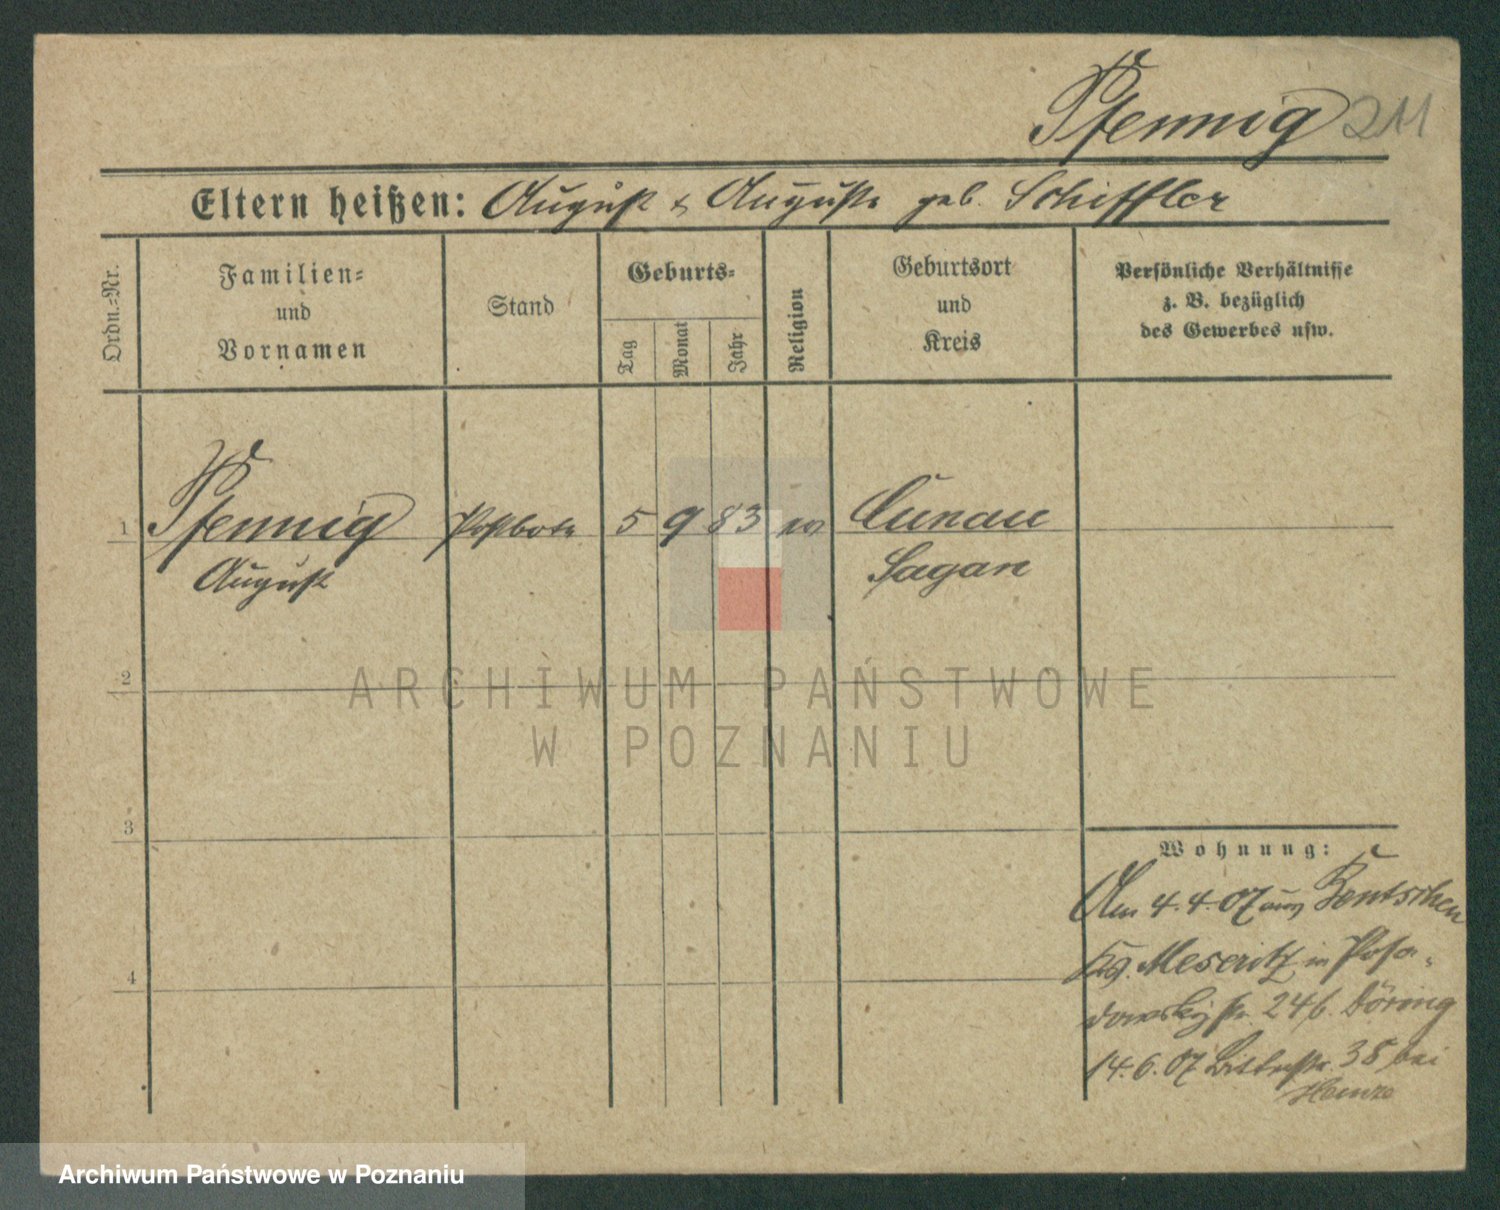 Pfennig 211
Eltern heißen: August & Auguste geb. Schiffler
Ordn.-Nr.
Familien-
und
Vornamen
Stand
Geburts-
Tag
Monat
Jahr
Religion
Geburtsort
und
Kreis
Persönliche Verhältnisse
z. B. bezüglich
des Gewerbes usw.
1 Pfennig Postbote 5 9 83 Cunau
August Sagan
2
3
4
Wohnung:
Am 4.4.07 aus Bentschen
Meseritz in Posa-
dowskystr. 24 b. Döring
14.6.07 38 bei
Heinze
ARCHIWUM PAŃSTWOWE
W POZNANIU
Archiwum Państwowe w Poznaniu